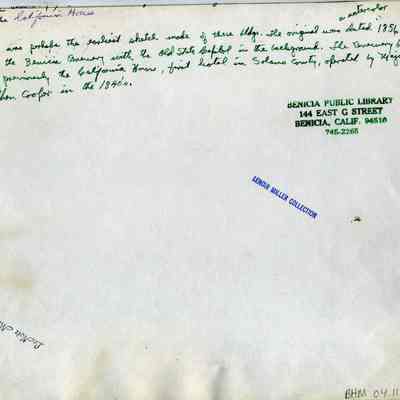 the California House
a watercolor
was perhaps the earliest sketch made of these bldgs. The original was dated 1856
the Benicia Brewery with the Old State Capitol in the background. The Brewery
previously the California House, first hotel in Solano County, operated by Major
Cooper in the 1840's.
BENICIA PUBLIC LIBRARY
144 EAST G STREET
BENICIA, CALIF. 94510
745-2265
LENOIR MILLER COLLECTION
BHM 04.11